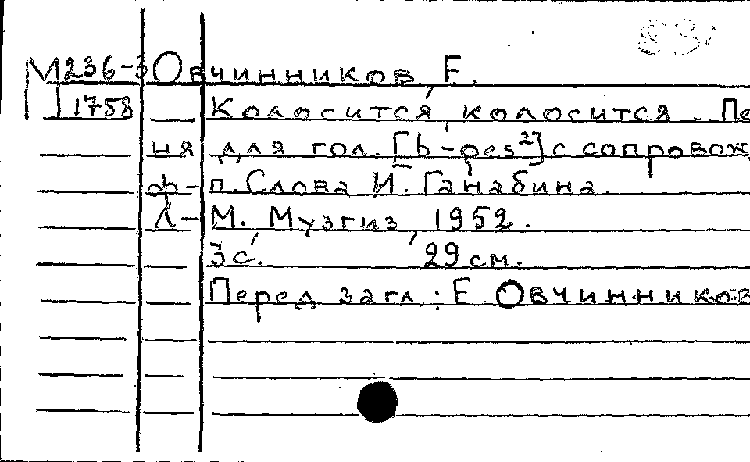 М236-3 Овчинников, Е.
1758 Колосится, колосится. Пе
ня для гол. [b-ges²] с сопровож
ф-п. Слова И. Ганабина.
Л-М. Музгиз, 1952.
3с. 29 см.
Перед загл.: Е. Овчинников